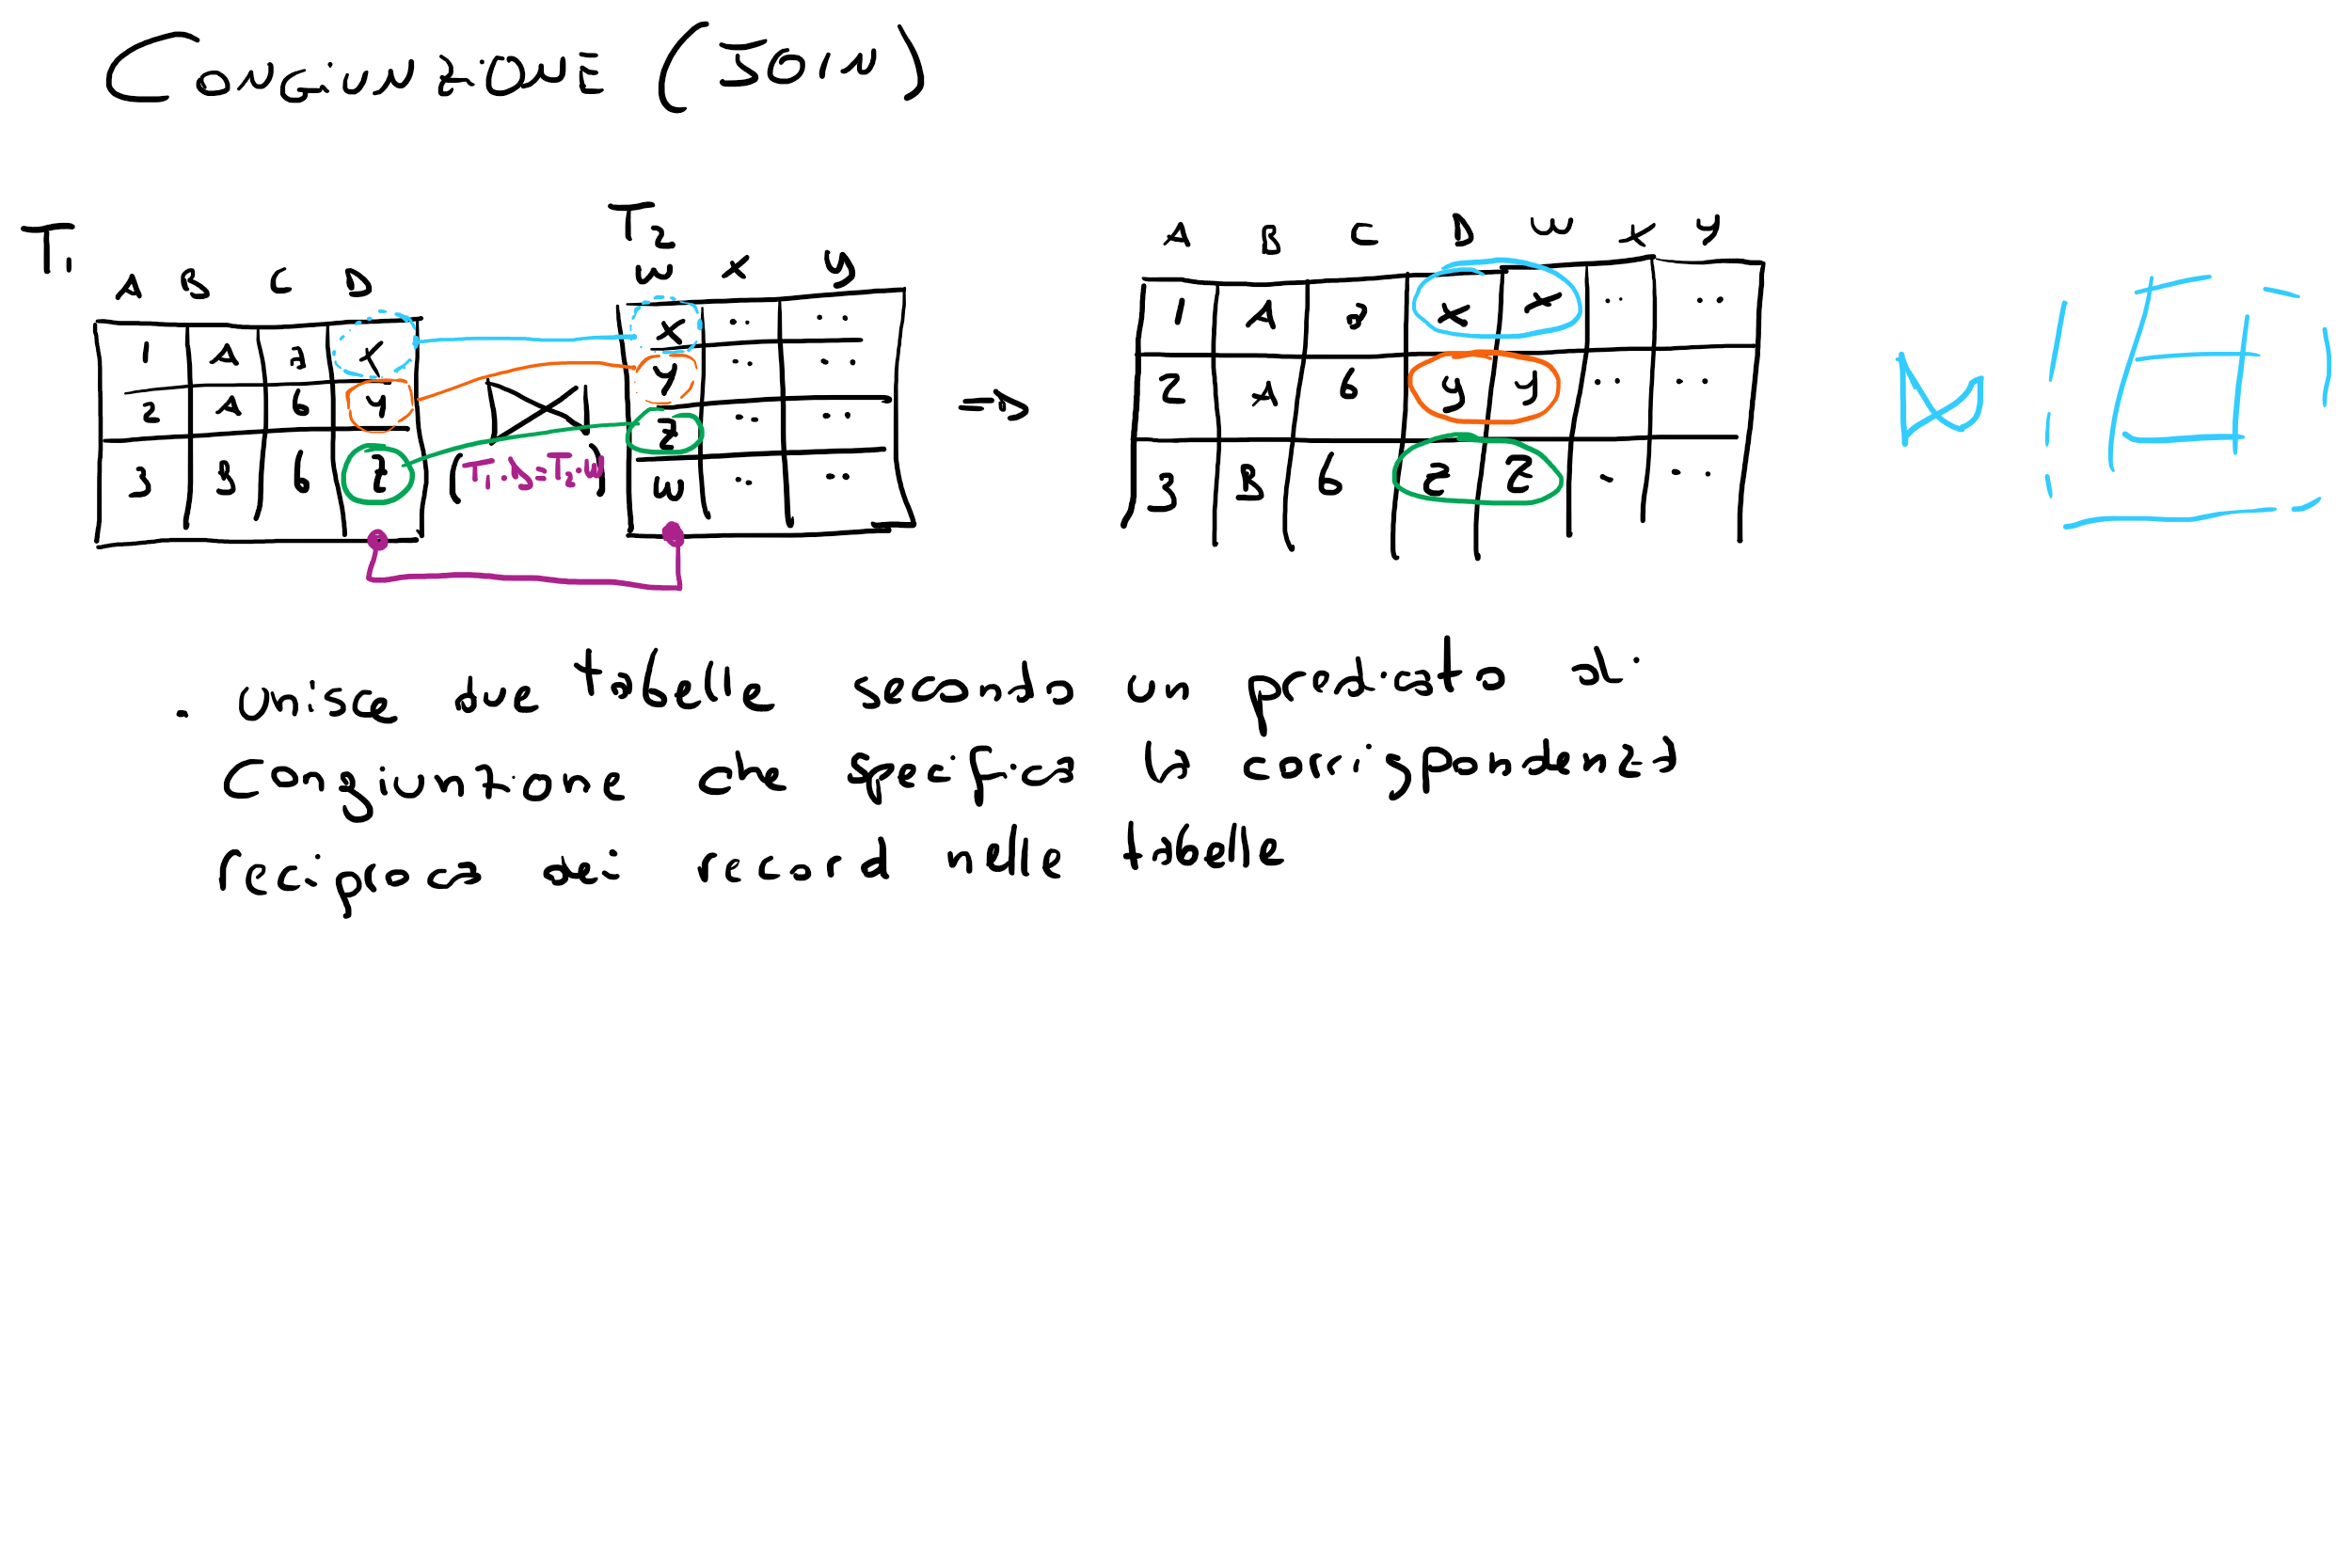 Congiunzione (Join)
T1
A B C D
1 A 5 X
2 A 6 Y
3 B 6 Z
(T1.D=T2.W)
T2
W X Y
X .. ..
Y .. ..
Z .. ..
W .. ..
=>
A B C D W X Y
1 A 5 X X .. ..
2 A 6 Y Y .. ..
3 B 6 Z Z .. ..
. unisce due tabelle secondo un predicato di
congiunzione che specifica la corrispondenza
reciproca dei record nelle tabelle